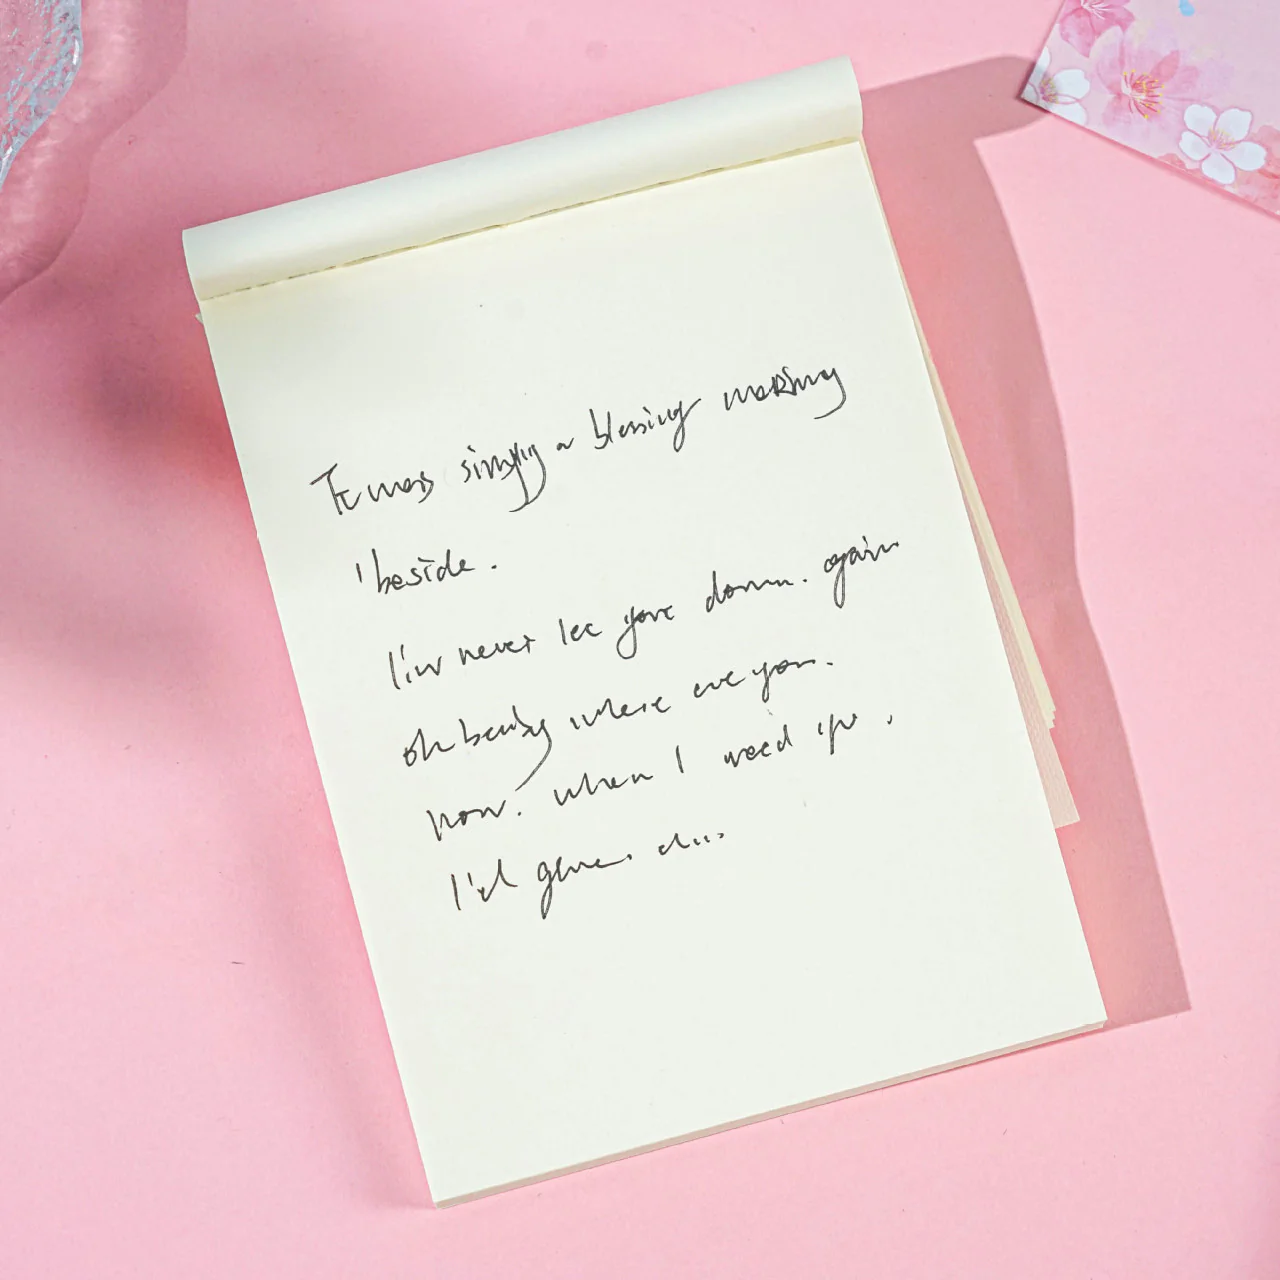 simply a blessing making
beside.
never let you down. again
oh baby where are you.
now. when I need
I'd give